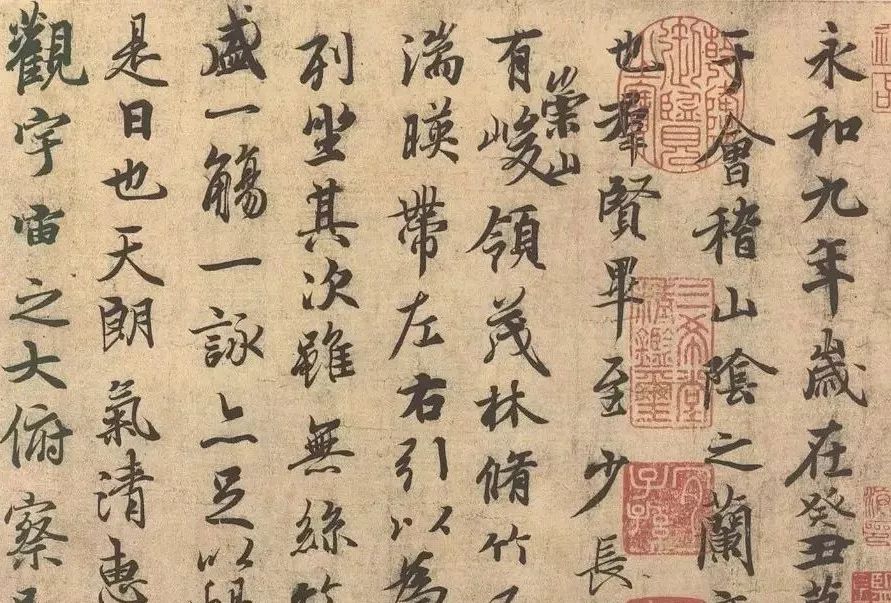 永和九年歲在癸丑暮
于會稽山陰之蘭亭
也群賢畢至少長
崇山
有峻領茂林脩竹
湍暎帶左右引以為
列坐其次雖無絲竹
盛一觴一詠亦足以暢
是日也天朗氣清惠
觀宇宙之大俯察